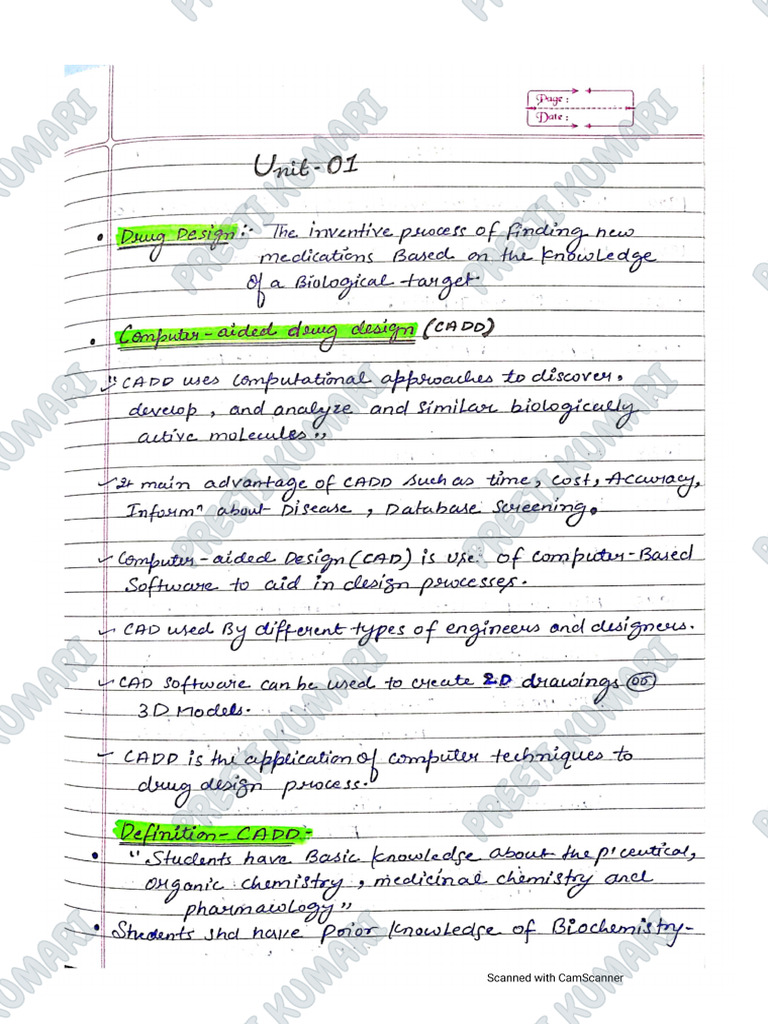 Page :
Date :
Unit-01
• Drug Design :- The inventive process of finding new
medications Based on the knowledge
of a Biological target.
• Computer-aided drug design (CADD)
"CADD uses computational approaches to discover,
develop, and analyze and similar biologically
active molecules"
✓ It main advantage of CADD such as time, cost, Accuracy,
Informⁿ about Disease, Database Screening.
✓ Computer-aided Design (CAD) is use of computer-Based
Software to aid in design processes.
✓ CAD used By different types of engineers and designers.
✓ CAD software can be used to create 2D drawings or
3D Models.
– CADD is the application of computer techniques to
drug design process.
Definition- CADD:-
• "Students have Basic knowledge about the p'ceutical,
organic chemistry, medicinal chemistry and
pharmacology"
• Students shd have prior knowledge of Biochemistry-
Scanned with CamScanner
PREETI KUMARI